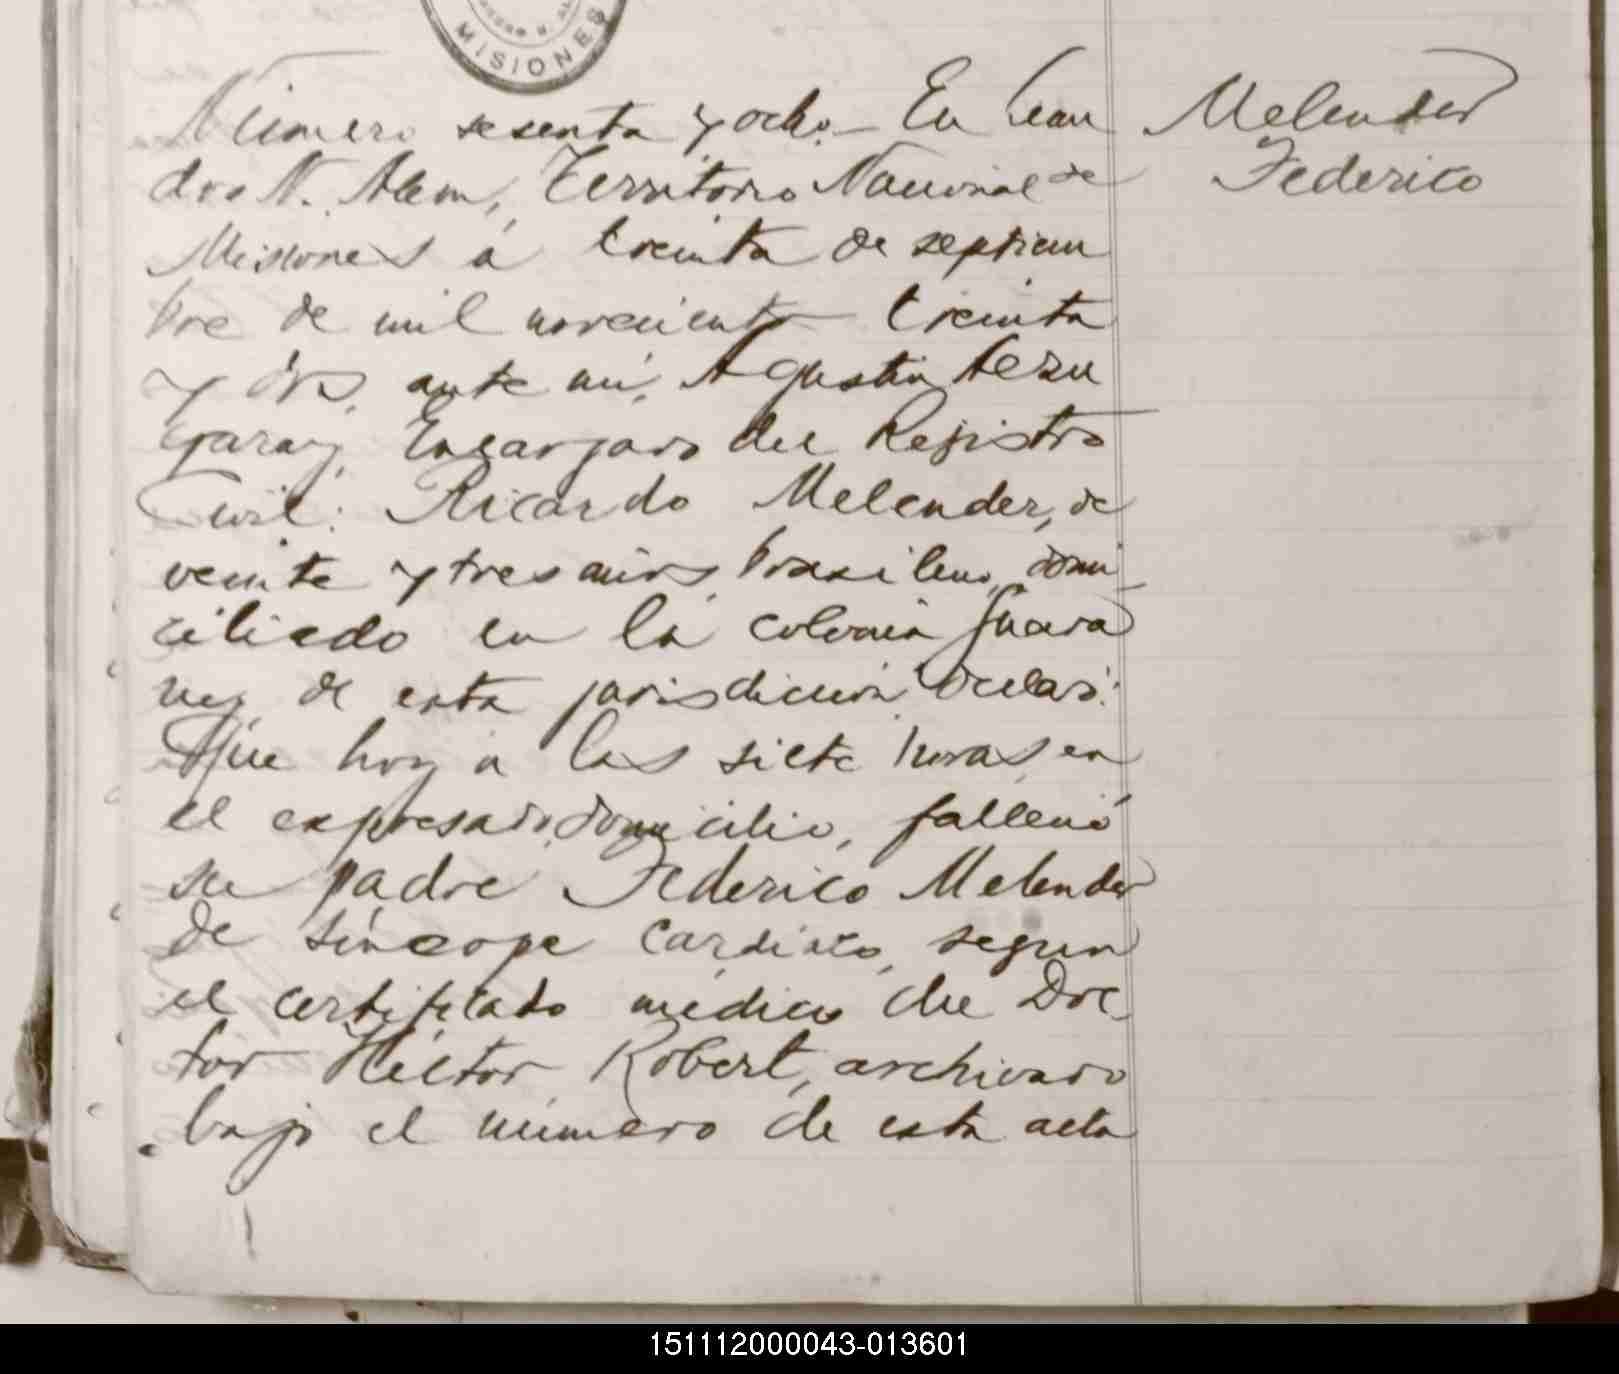 MISIONES
Número sesenta y ocho.- En Lean
dro N. Alem, Territorio Nacional de
Misiones á treinta de septiem
bre de mil novecientos treinta
y dós, ante mí, Agustin
garay, Encargado del Registro
Civil: Ricardo Melender, de
veinte y tres años, brasileno, domi
ciliado en la colonia Guara
ny de esta jurisdicción declaró:
Que hoy á las siete horas, en
el expresado domicilio, falleció
su padre Federico Melender
de síncope cardiaco, segun
el certificado médico del Doc
tor Héctor Robert, archivado
bajo el número de esta acta
Melender
Federico
151112000043-013601